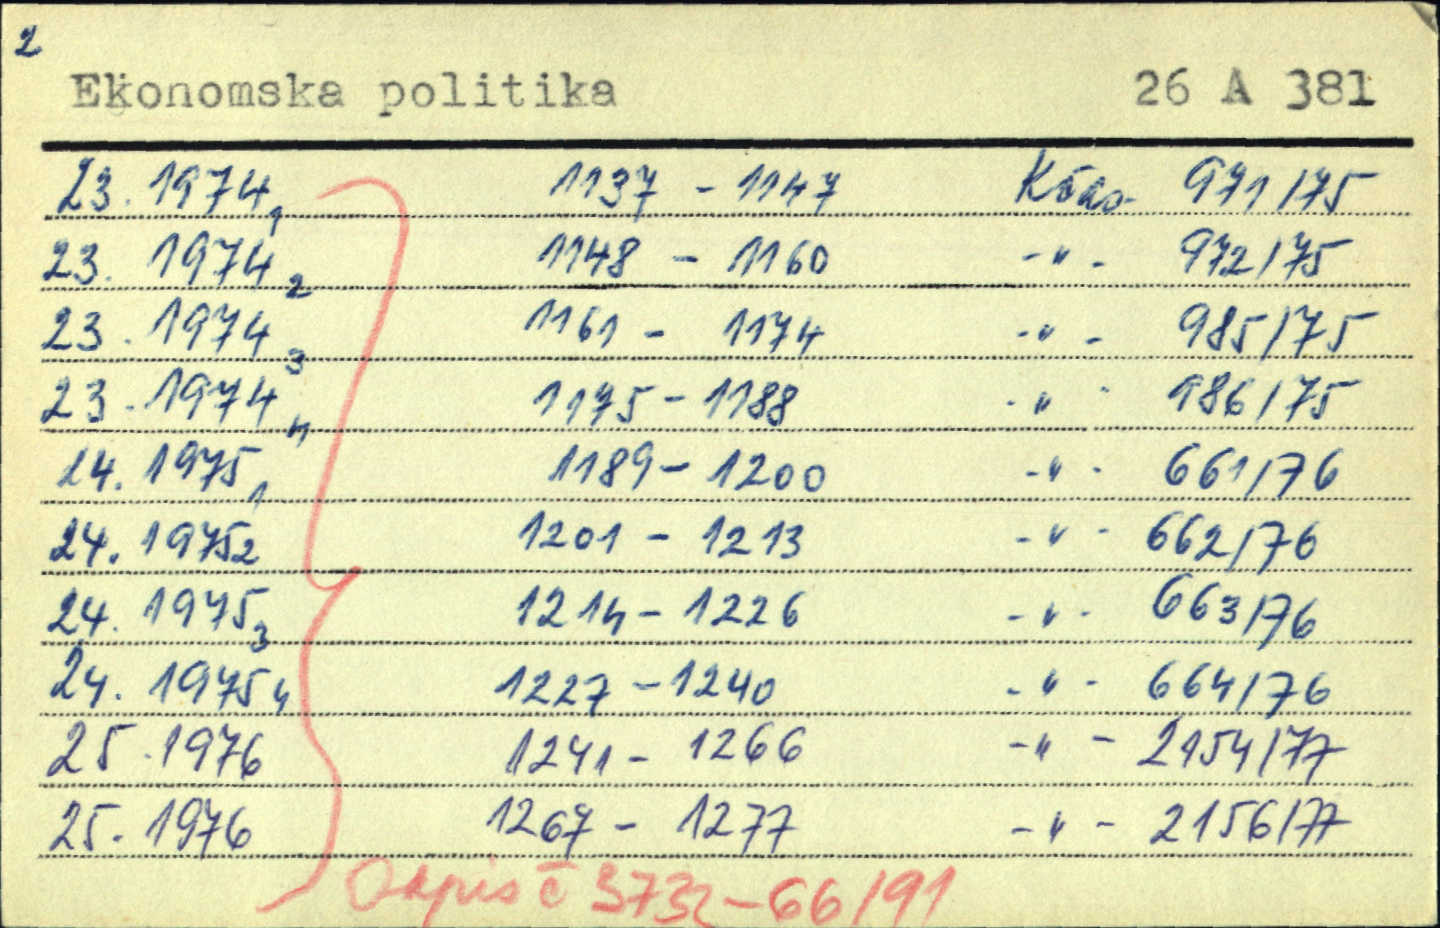 2
Ekonomska politika 26 A 381
23. 1974,1 1137 - 1147 971/75
23. 1974 2 1148 - 1160 -"- 972/75
23. 1974 3 1161 - 1174 -"- 985/75
23. 1974 4 1175 - 1188 -"- 986/75
24. 1975 1 1189 - 1200 -"- 661/76
24. 1975 2 1201 - 1213 -"- 662/76
24. 1975 3 1214 - 1226 -"- 663/76
24. 1975 4 1227 - 1240 -"- 664/76
25. 1976 1241 - 1266 -"- 2154/77
25. 1976 1267 - 1277 -"- 2156/77
Odpis č 3732-66/91